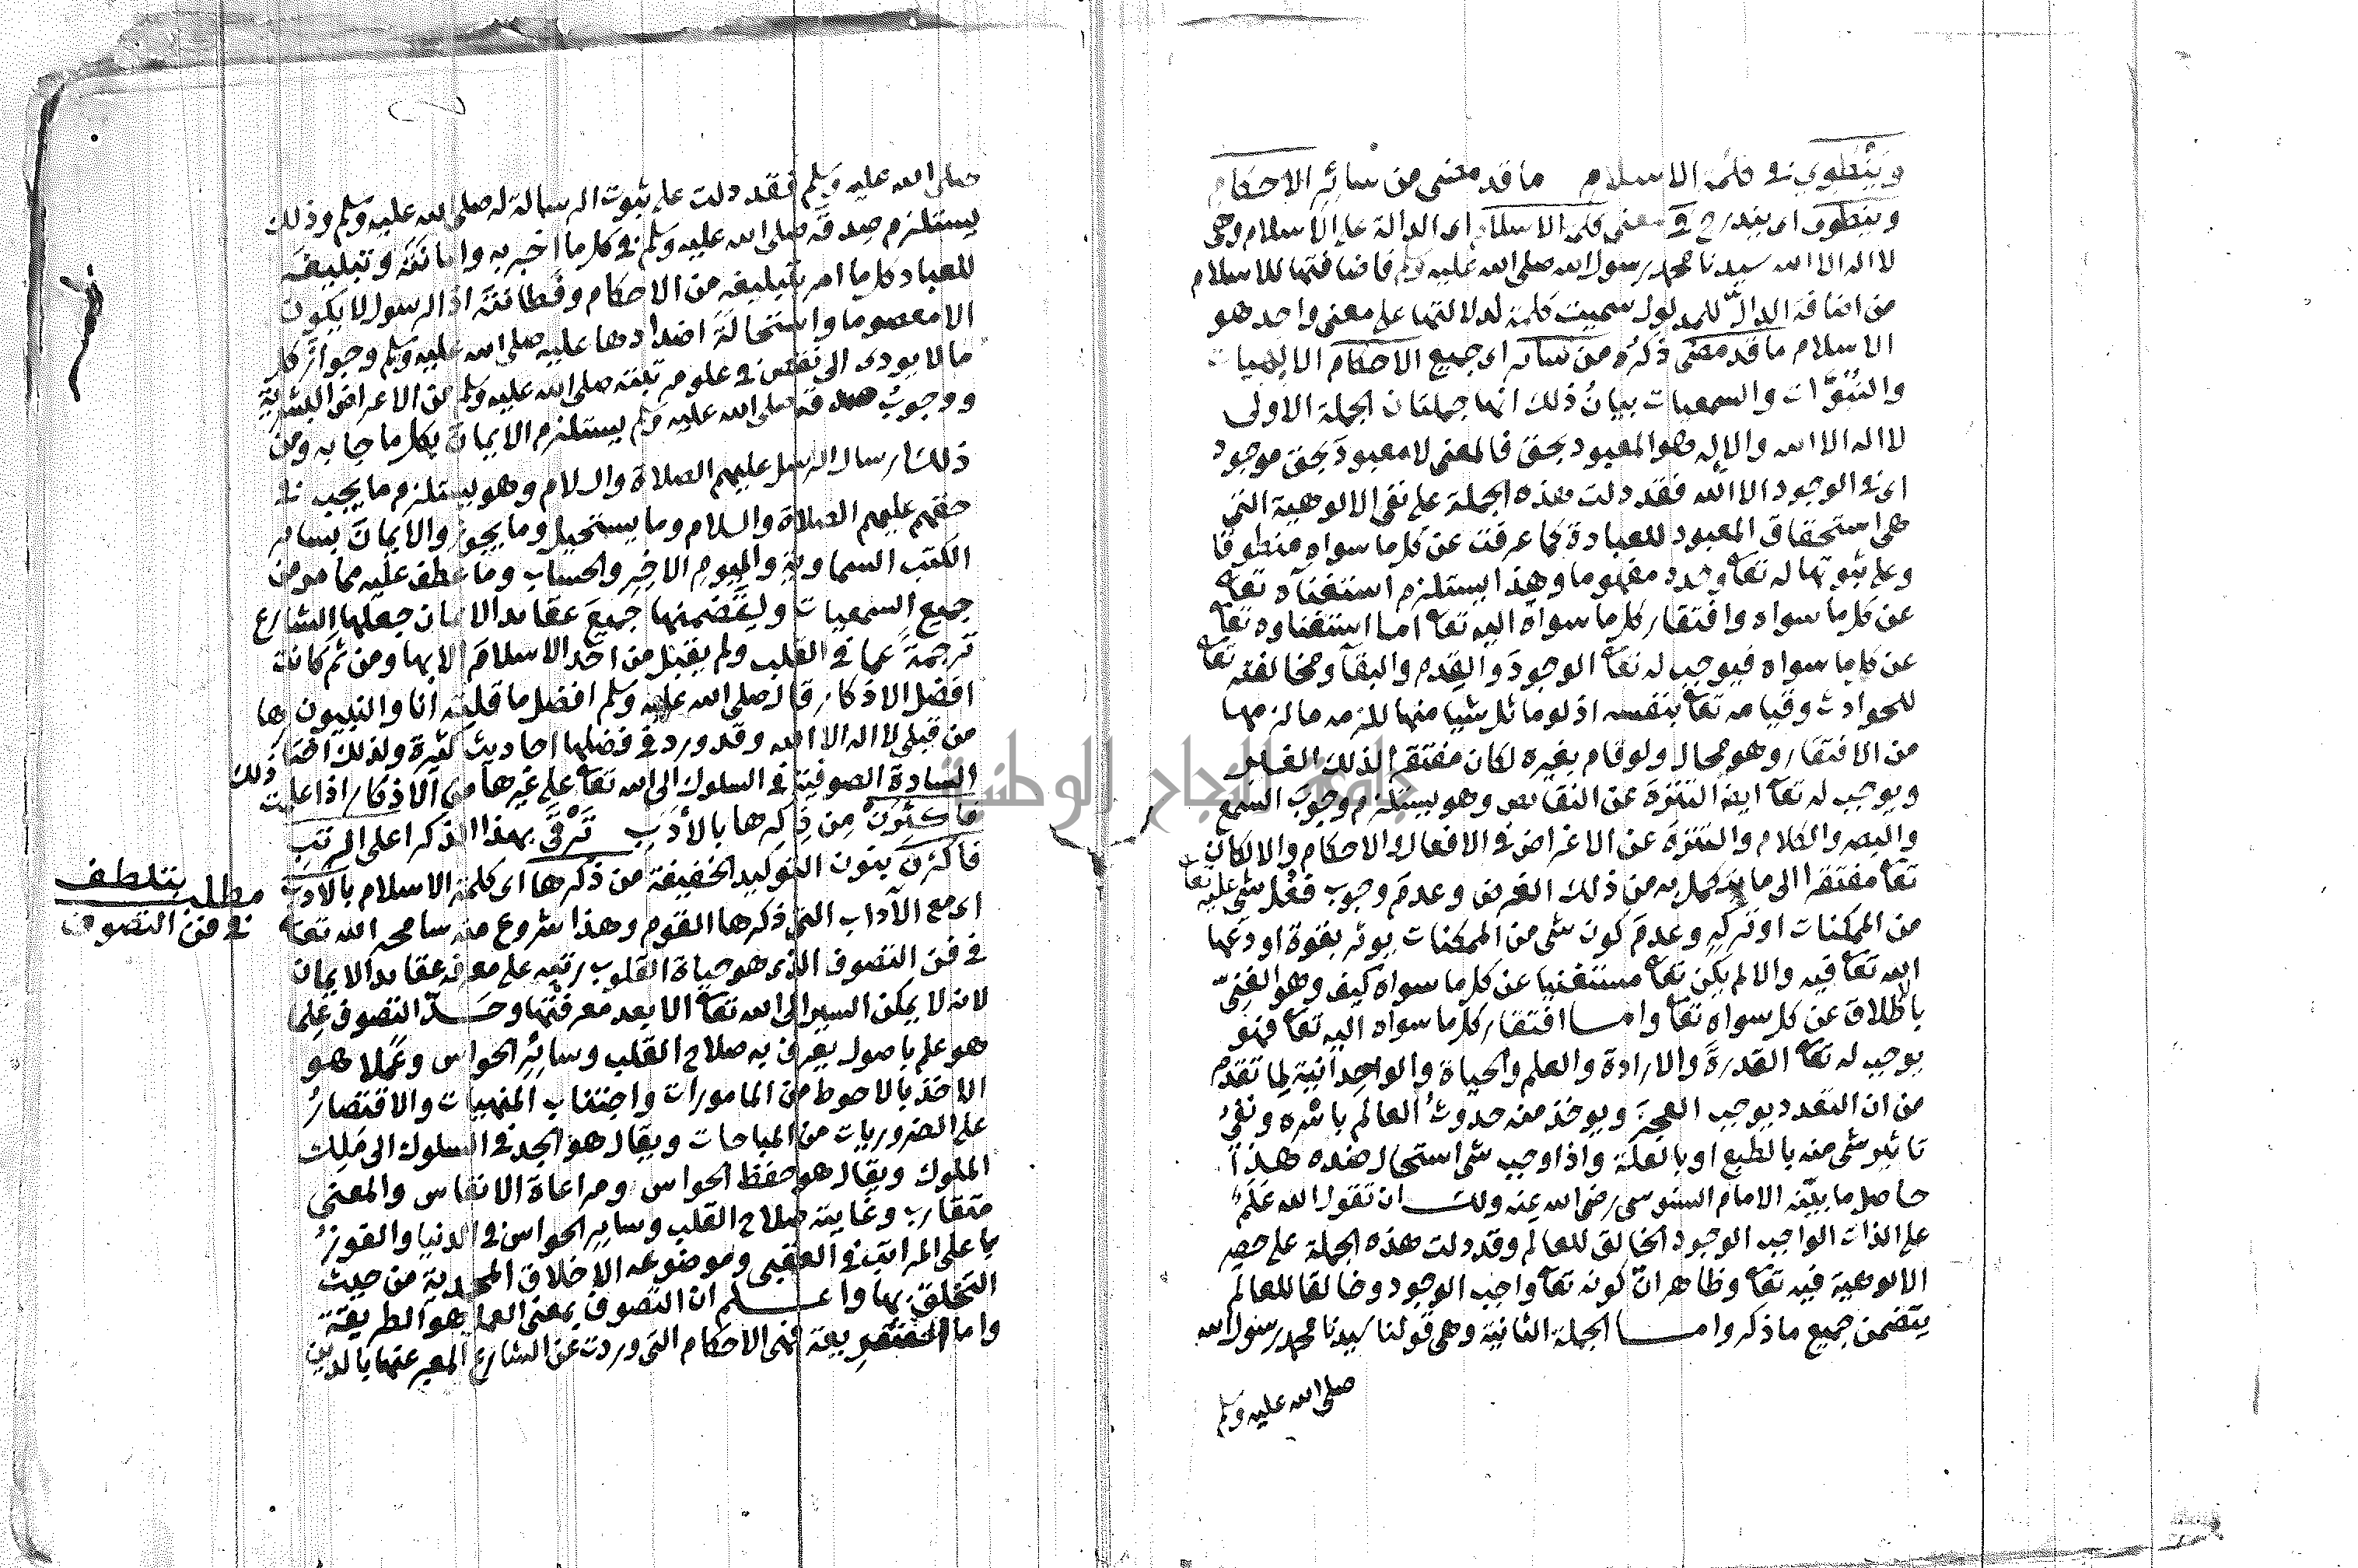 وينطوي في كلمة الاسلام ما قد مضى من سائر الاحكام
وينطوى اى يندرج في معنى كلمة الاسلام اى الدالة على الاسلام وهى
لا اله الا الله سيدنا محمد رسول الله صلى الله عليه وسلم فاضافتها للاسلام
من اضافة الدالّ للمدلول سميت كلمة لدلالتها على معنى واحد هو
الاسلام ما قد مضى ذكره من سائر اى جميع الاحكام الالهيات
والنبوّات والسمعيات بيانُ ذلك انها جملتان الجملة الاولى
لا اله الا الله والاله هو المعبود بحق فالمعنى لا معبودَ بحق موجود
اى في الوجود الا الله فقد دلت هذه الجملة على نفى الالوهية التي
هى استحقاق المعبود للعبادة كما عرفت عن كل ما سواه منطوقا
وعلى ثبوتها له تعا وحده مفهوما وهذا يستلزم استغناءه تعا
عن كل ما سواه وافتقار كل ما سواه اليه تعا اما استغناوه تعا
عن كل ما سواه فيوجب له تعا الوجودَ والقدم والبقآ ومخالفته تعا
للحوادث وقيامه تعا بنفسه اذ لو ماثل شيا منها للزمه ما لزمها
من الافتقار وهو محال ولو قام بغيره لكان مفتقرا لذلك الغير
ويوجب له تعا ايضا التنزهَ عن النقائص وهو يستلزم وجوبَ السمع
والبصر والكلام والتنزهَ عن الاغراض في الافعال والاحكام والا لكان
تعا مفتقرا الى ما يتكمل به من ذلك الغرض وعدمَ وجوب فعل شى عليه تعا
من الممكنات او تركِه وعدمَ كون شى من الممكنات يوثر بقوة اودعها
الله تعا فيه والا لم يكن تعا مستغنيا عن كل ما سواه كيف وهو الغنىّ
بالاطلاق عن كل سواه تعا واما افتقار كل ما سواه اليه تعا فهو
يوجب له تعا القدرةَ والارادة والعلم والحياة والواحدانية لما تقدم
من ان التعدد يوجب العجزَ ويوخذ منه حدوثُ العالم باسره ونفىُ
تاثير شى منه بالطبع او بالعلة واذا وجب شى استحال ضده هذا
حاصل ما بيّنه الامام السنوسى رضى الله عنه ولك ان تقول الله عَلَمٌ
على الذات الواجب الوجود الخالق للعالم وقد دلت هذه الجملة على حصر
الالوهية فيه تعا وظاهر انّ كونه تعا واجب الوجود وخالقا للعالم
يتضمن جميع ما ذكر واما الجملة الثانية وهى قولنا سيدنا محمد رسول الله
صلى الله عليه وسلم
صلى الله عليه وسلم فقد دلت على ثبوت الرسالة له صلى الله عليه وسلم وذلك
يستلزم صدقه صلى الله عليه وسلم في كل ما اخبر به وامانتَه وتبليغَه
للعباد كل ما امر بتبليغه من الاحكام وفطانتَه اذ الرسول لا يكون
الا معصوما واستحالةَ اضدادها عليه صلى الله عليه وسلم وجوازَ كل
ما لا يودى الى نقص في علو مرتبته صلى الله عليه وسلم من الاعراض البشرية
ووجوبُ صدقه صلى الله عليه وسلم يستلزم الايمانَ بكل ما جا به ومن
ذلك ارسال الرسل عليهم الصلاة والسلام وهو يستلزم ما يجب في
حقهم عليهم الصلاة والسلام وما يستحيل وما يجوز والايمانَ بسائر
الكتب السماوية واليوم الاخِر والحساب وما عطف عليه مما مر من
جميع السمعيات ولتضمنها جميعَ عقايد الايمان جعلها الشارع
ترجمةً عما في القلب ولم يقبل من احد الاسلامَ الا بها ومن ثم كانت
افضل الاذكار قال صلى الله عليه وسلم افضل ما قلته انا والنبيون
من قبلى لا اله الا الله وقد ورد في فضلها احاديث كثيرة ولذلك اختارها
السادة الصوفية في السلوك الى الله تعا على غيرها من الاذكار اذا علمت ذلك
فاكثرنْ مِن ذكرِها بالأدبِ تَرْقَى بهذا الذكر اعلى الرتبِ
فاكثرن بنون التوكيد الخفيفة من ذكرها اى كلمة الاسلام بالادب
اى مع الآداب التي ذكرها القوم وهذا شروع منه سامحه الله تعا
مطلب يتلطف
في فن التصوف
في فن التصوف الذى هو حياة القلوب رتبه على معرفة عقايد الايمان
لانه لا يمكن السير الى الله تعا الا بعد معرفتها وحَدّ التصوف عِلما
هو علم باصول يعرف به صلاح القلب وسائِر الحواس وعَمَلا هو
الاخذ بالاحوط من المامورات واجتناب المنهيات والاقتصارُ
على الضروريات من المباحات ويقال هو الجد في السلوك الى مَلِك
الملوك ويقال هو حفظ الحواس ومراعاة الانفاس والمعنى
متقارب وغايته صلاح القلب وساير الحواس في الدنيا والفوزُ
باعلى المراتب في العقبى وموضوعه الاخلاق المحمدية من حيث
التخلق بها واعلم ان التصوف بمعنى العمل هو الطريقة
واما الشريعة فهى الاحكام التى وردت عن الشارع المعبر عنها بالدين
جامعة النجاح الوطنية